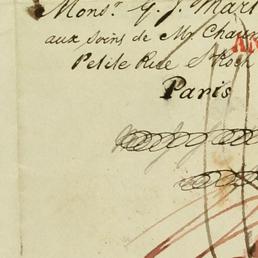 Monsr. G. J. Mart
aux soins de Mr Chaun
Petite Rue St Roch
Paris